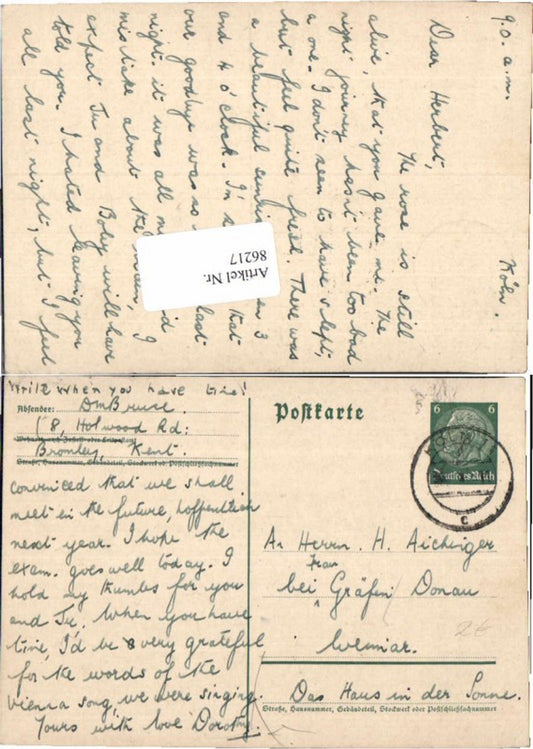 9.0. a.m. Köln.
Dear Herbert,
The rose is still
alive, that you gave me. The
night journey hasn't been too bad
a one. I don't seem to have slept,
but feel quite fresh. There was
a beautiful 3
and 4 o'clock. I'm that
our goodbye was so last
night. it was all
mistake about the I
expect Ju and Boley will have
told you. I hated leaving you
all last night, but I feel
Artikel Nr.
86217
Write when you have time!
Absender: DMBruce.
18, Holwood Rd:
Wohnort, auch Zustell- oder Leitpostamt
Bromley, Kent.
Straße, Hausnummer, Gebäudeteil, Stockwerk od. Postschließfachnummer
Postkarte
6 6
Deutsches Reich
KÖLN
c
convinced that we shall
meet in the future, hoffentlich
next year. I hope the
exam. goes well today. I
hold my thumbs for you
and Ju. When you have
time, I'd be very grateful
for the words of the
Vienna song, we were singing.
Yours with love Dorothy.
An Herrn. H. Aichinger
Frau
bei Gräfin Donau
Weimar.
Das Haus in der Sonne.
Straße, Hausnummer, Gebäudeteil, Stockwerk oder Postschließfachnummer